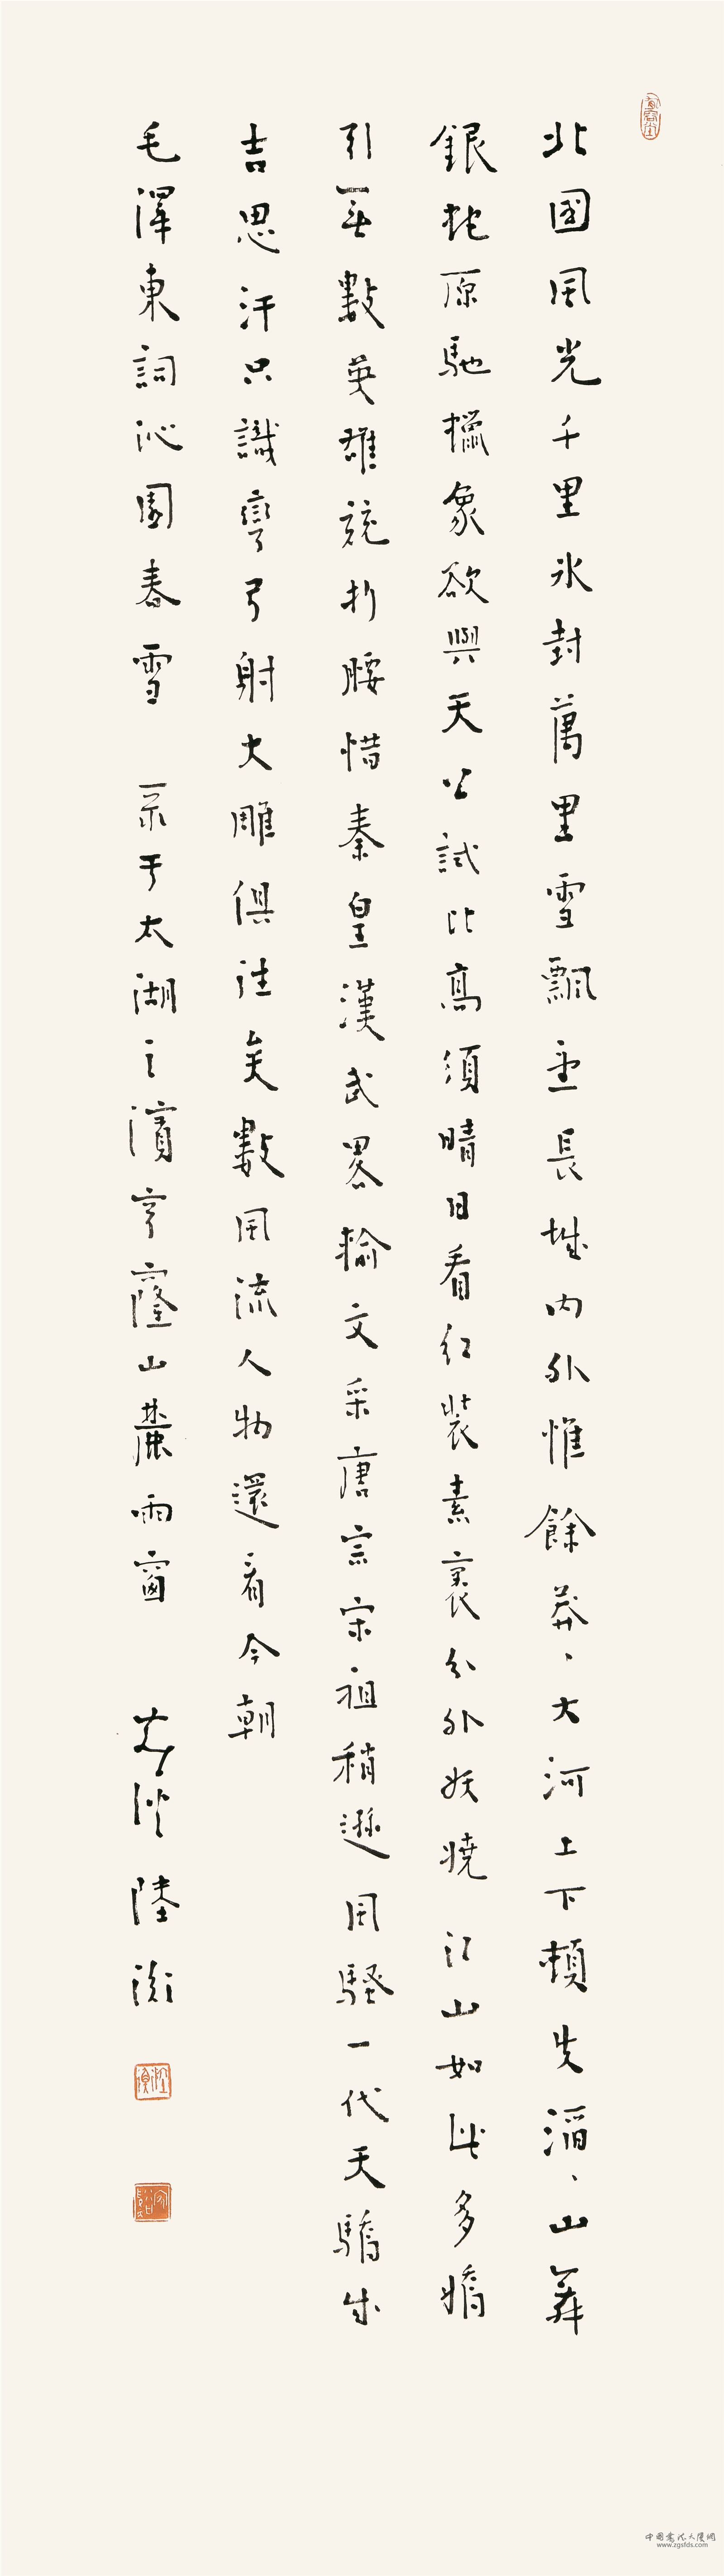 北國風光千里冰封萬里雪飄望長城内外惟餘莽、大河上下頓失滔、山舞
銀蛇原馳蠟象欲與天公試比高須晴日看紅裝素裹分外妖嬈 江山如此多嬌
引無數英雄競折腰惜秦皇漢武畧輸文采唐宗宋祖稍遜風騷一代天驕成
吉思汗只識彎弓射大雕俱往矣數風流人物還看今朝
毛澤東詞沁園春雪 录于太湖之濱穹窿山麓雨窗 陸衡
www.zgsfds.com